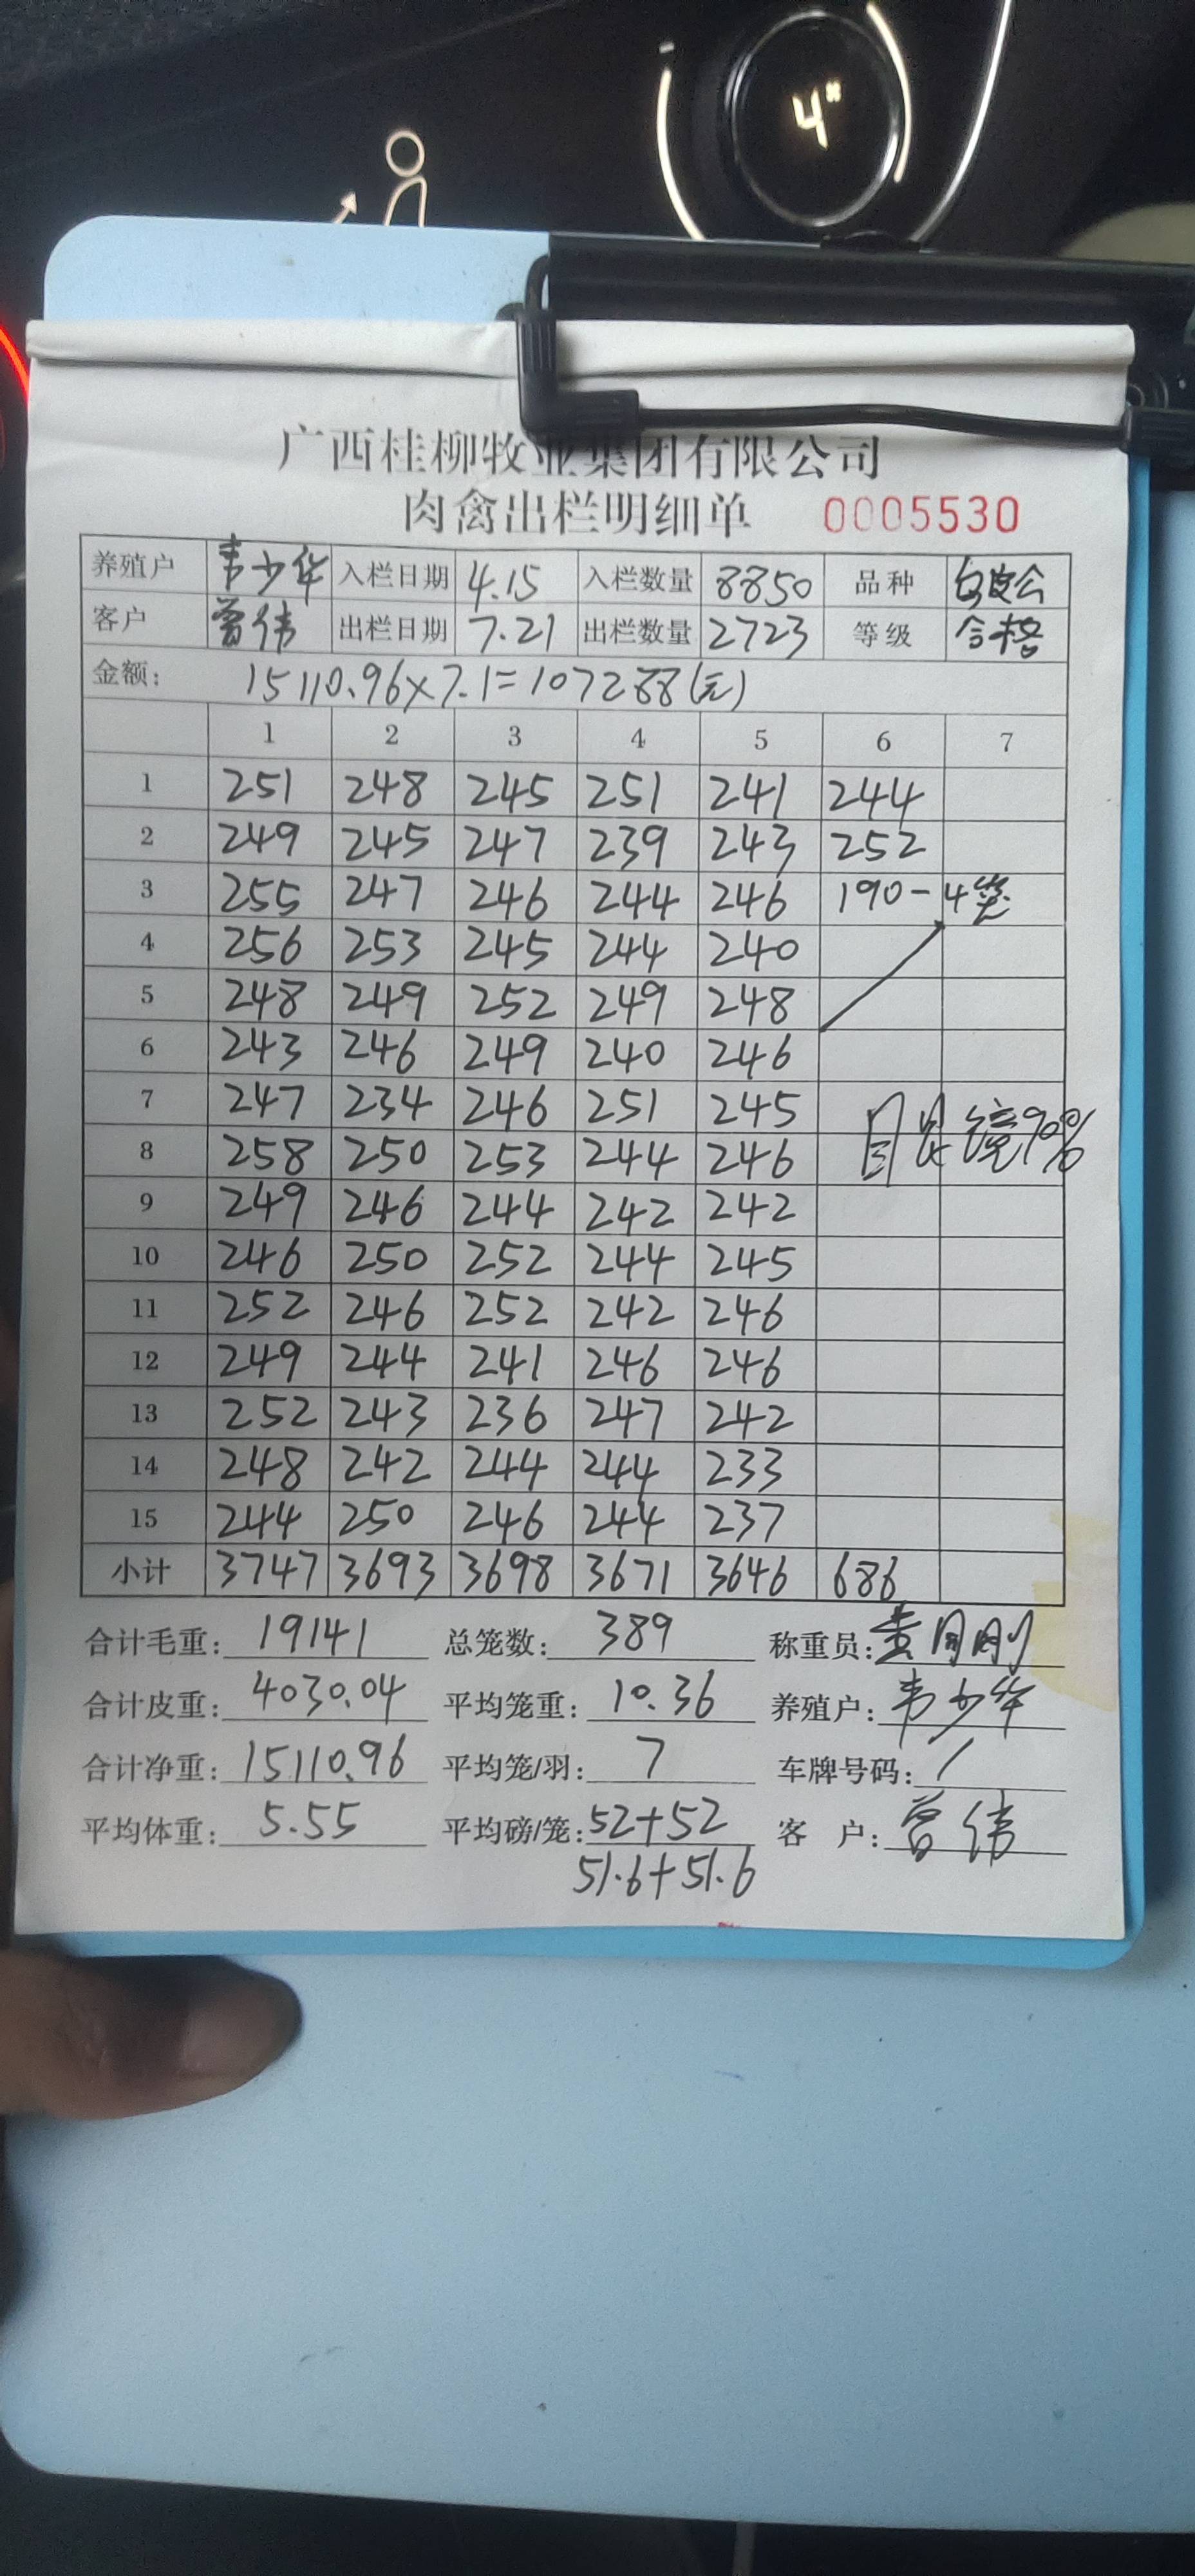 4
广西桂柳牧业集团有限公司
肉禽出栏明细单 0005530
养殖户 韦少华 入栏日期 4.15 入栏数量 8850 品种 白皮公
客户 曾伟 出栏日期 7.21 出栏数量 2723 等级 合格
金额: 15110.96×7.1=107288(元)
1 2 3 4 5 6 7
1 251 248 245 251 241 244
2 249 245 247 239 243 252
3 255 247 246 244 246 190-4笼
4 256 253 245 244 240
5 248 249 252 249 248
6 243 246 249 240 246
7 247 234 246 251 245
目艮镜90%
8 258 250 253 244 246
9 249 246 244 242 242
10 246 250 252 244 245
11 252 246 252 242 246
12 249 244 241 246 246
13 252 243 236 247 242
14 248 242 244 244 233
15 244 250 246 244 237
小计 3747 3693 3698 3671 3646 686
合计毛重: 19141 总笼数: 389 称重员:
合计皮重: 4030.04 平均笼重: 10.36 养殖户: 韦少华
合计净重: 15110.96 平均笼/羽: 7 车牌号码: /
平均体重: 5.55 平均磅/笼: 52+52 客 户: 曾伟
51.6+51.6